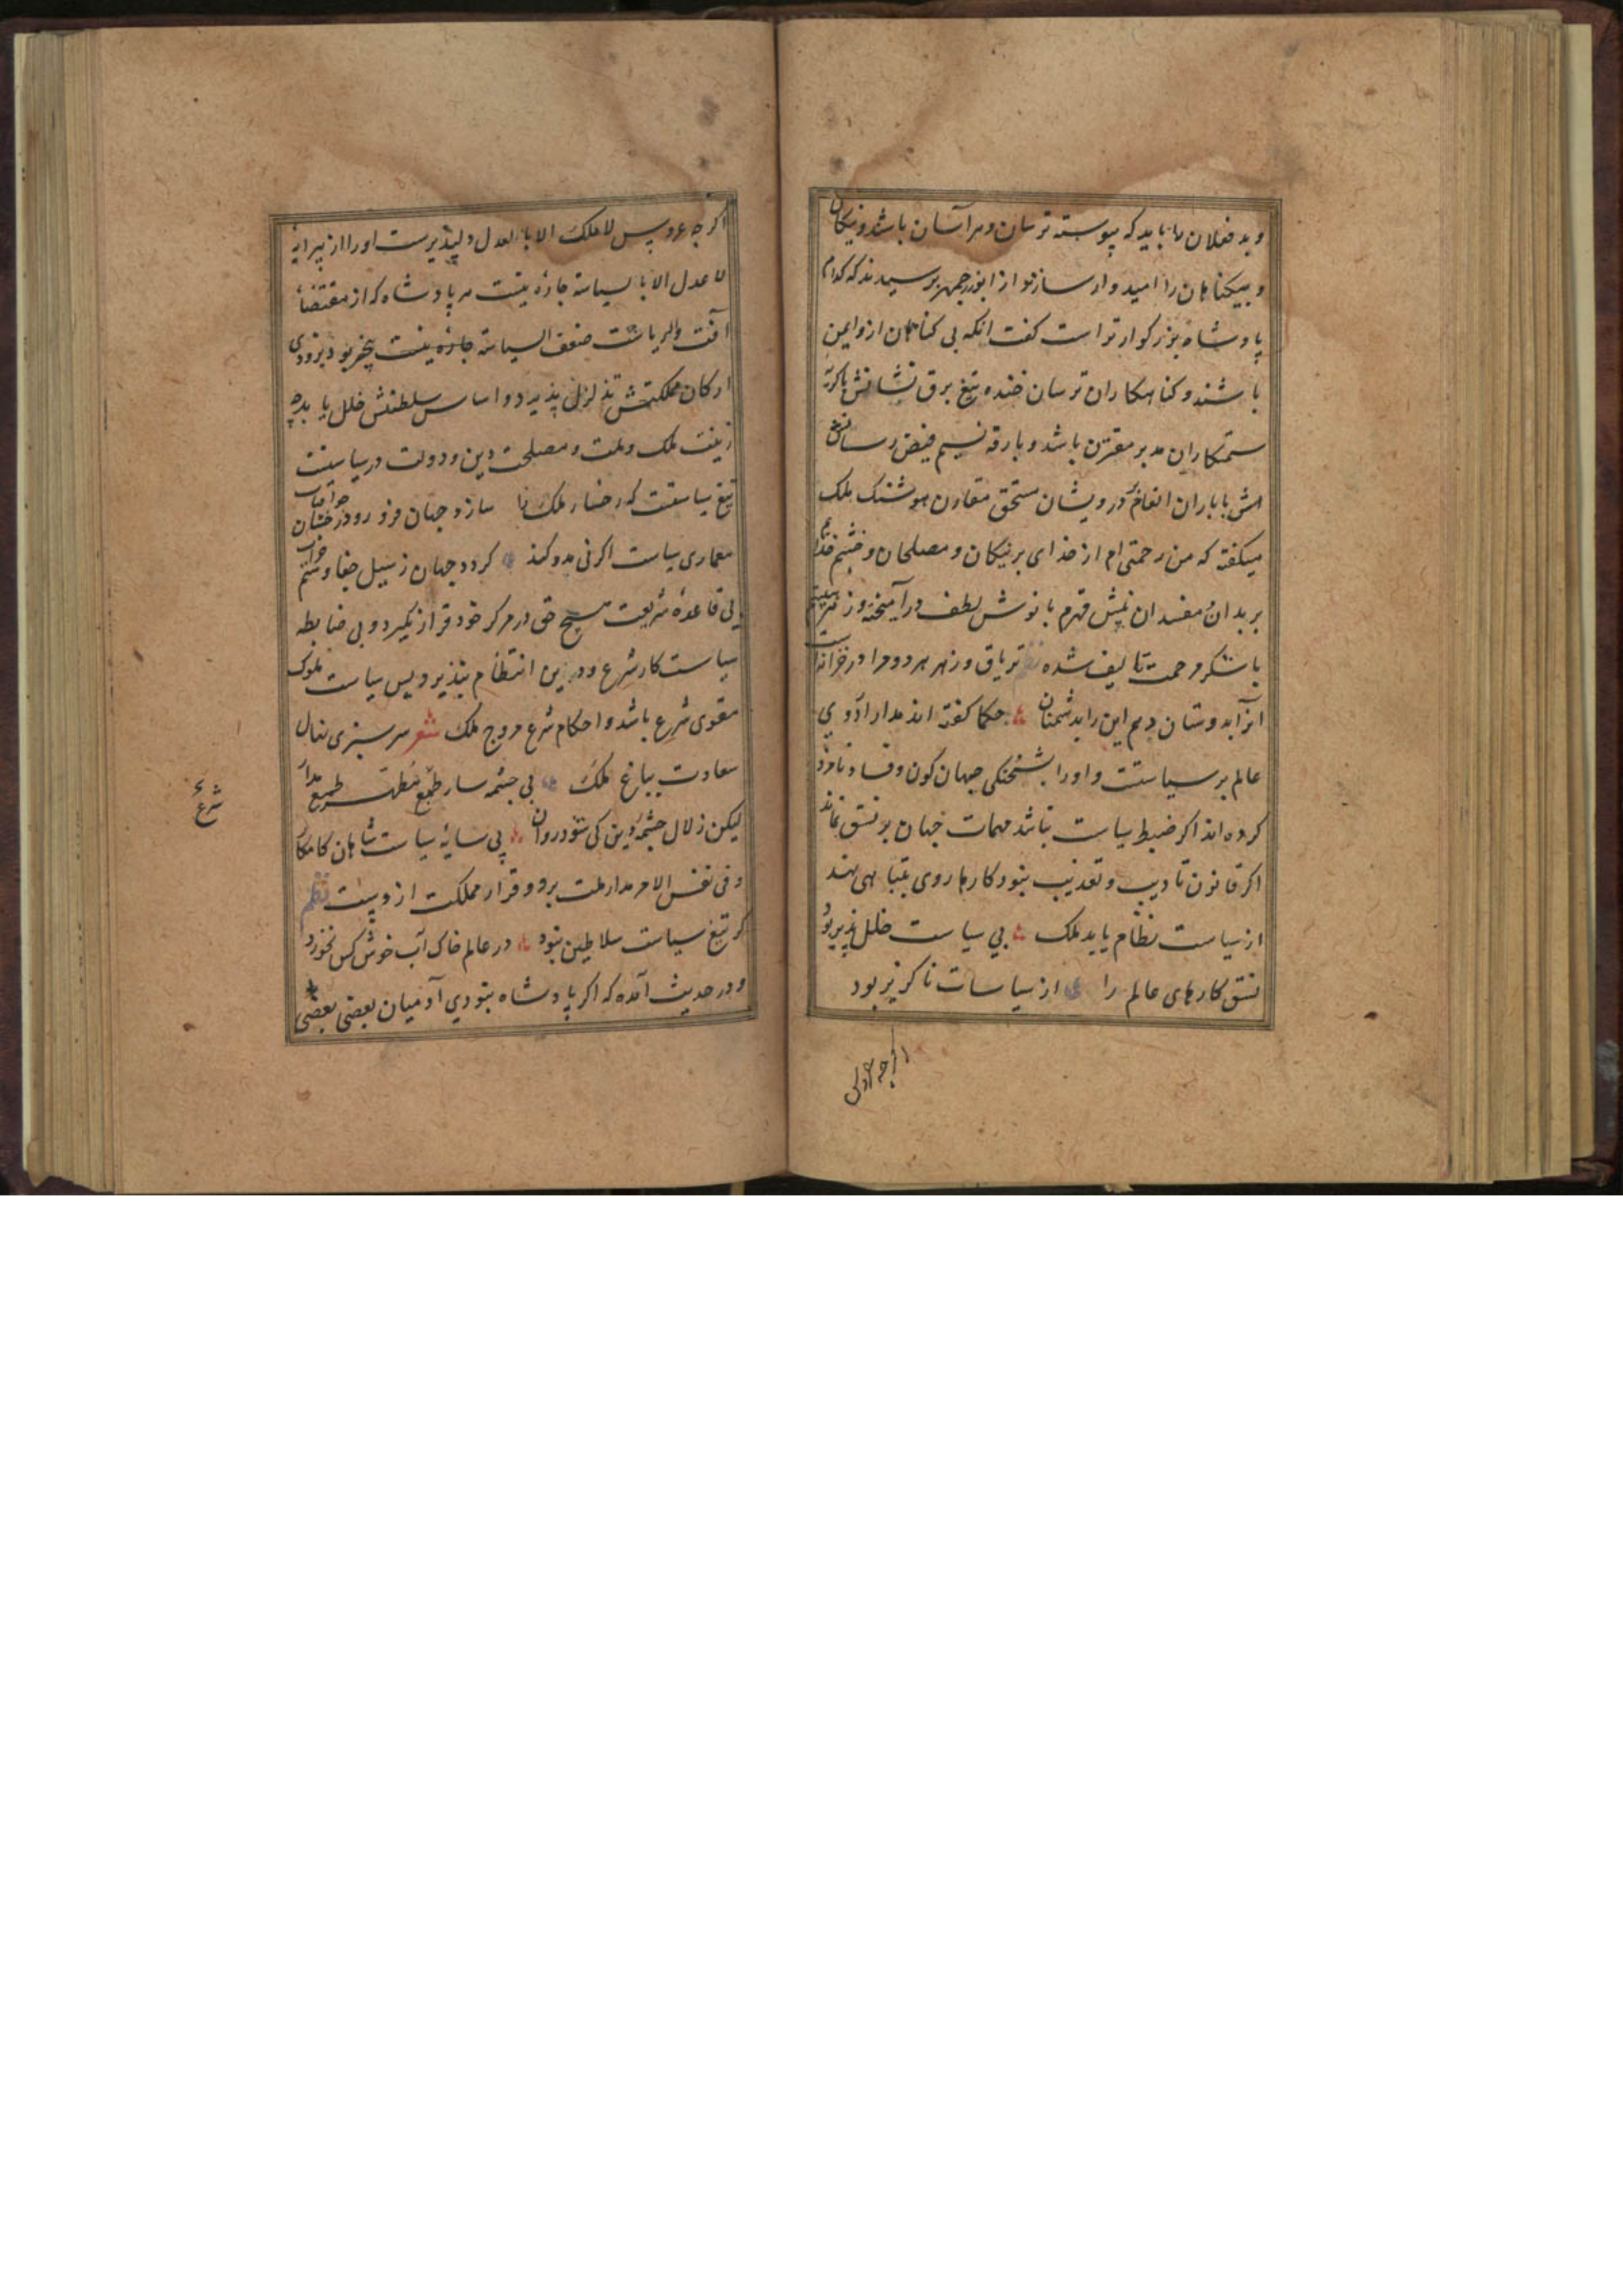 و بد فعلان را باید که پیوسته ترسان و هراسان باشد و نیکان
و بیگناهان را امیدوار سازد و از ابوزرجمهر پرسیدند که کدام
پادشاه بزرگوارتر است گفت انکه بی گناهان ازو ایمن
باشند و گناهکاران ترسان خنده تیغ برق نشانش با گریه
ستمکاران مدبر مقترن باشد و بارقه نسیم فیض رسانش
اش با باران انعام درویشان مستحق مقارن هوشنک ملک
میگفته که من رحمتی ام از خدای بر نیکان و مصلحان و خشم خدا
بر بدان و مفسدان نیش قهرم با نوش لطف درآمیخته و زهر
با شکر مرحمت تالیف شده نظم تریاق و زهر هر دو مرا در خزانه است
آنرا بدوستان دهم این را بدشمنان حکما گفته اند مدار اداوی
عالم بر سیاستست و او را بشحنگی جهان کون و فساد نامزد
کرده اند اگر ضبط سیاست نباشد مهمات جهان بر نسق نماند
اگر قانون تادیب و تعذیب نبود کارها روی بتباهی نهد
از سیاست نظام یابد ملک بی سیاست خلل پذیر بود
نسق کارهای عالم را از سیاسات ناگزیر بود
اگرچه عروس
اگرچه عروس لا ملک الا بالعدل دلپذیرست او را از پیرایه
لا عدل الا بالسیاسة چاره نیست هر پادشاه که از مقتضاء
آفت الریاست ضعف السیاسة چاره نیست بیخبر بود بزودی
ارکان مملکتش تزلزل پذیرد و اساس سلطنتش خلل یابد چه
زینت ملک و ملت و مصلحت دین و دولت در سیاستست
تیغ سیاستست که رخسار ملک را سازد جهان فروز و درخشان چو آفتاب
معماری سیاست اگر نی مدد کند گردد جهان ز سیل جفا و ستم خراب
بی قاعده شریعت هیچ حق در مرکز خود قرار نگیرد و بی ضابطه
سیاست کار شرع و دین انتظام نپذیرد پس سیاست ملوک
مقوی شرع باشد و احکام شرع مروج ملک شعر سرسبزی نهال
سعادت بباغ ملک بی چشمه سار طمع مطهر طمع مدار
شرع
لیکن زلال چشمه دین کی شود روان بی سایه سیاست شاهان کامکار
و فی نفس الامر مدار ملت برو و قرار مملکت ازوست نظم
گر تیغ سیاست سلاطین نبود در عالم خاک آب خوش کس نخورد
و در حدیث آمده که اگر پادشاه نبودی آدمیان بعضی بعضی